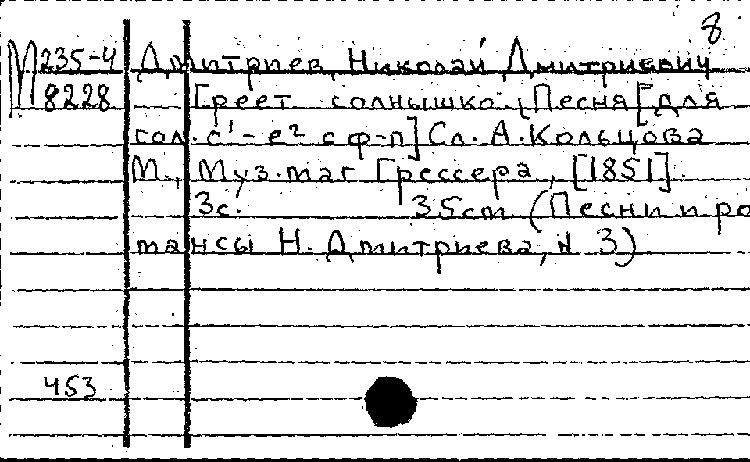 8
М 235-4 Дмитриев, Николай Дмитриевич
8228 Греет солнышко. Песня [для
гол. c¹-e² с ф-п] Сл. А. Кольцова
М., Муз. маг Грессера, [1851].
3с. 35cm (Песни и ро
мансы Н. Дмитриева, N 3)
453